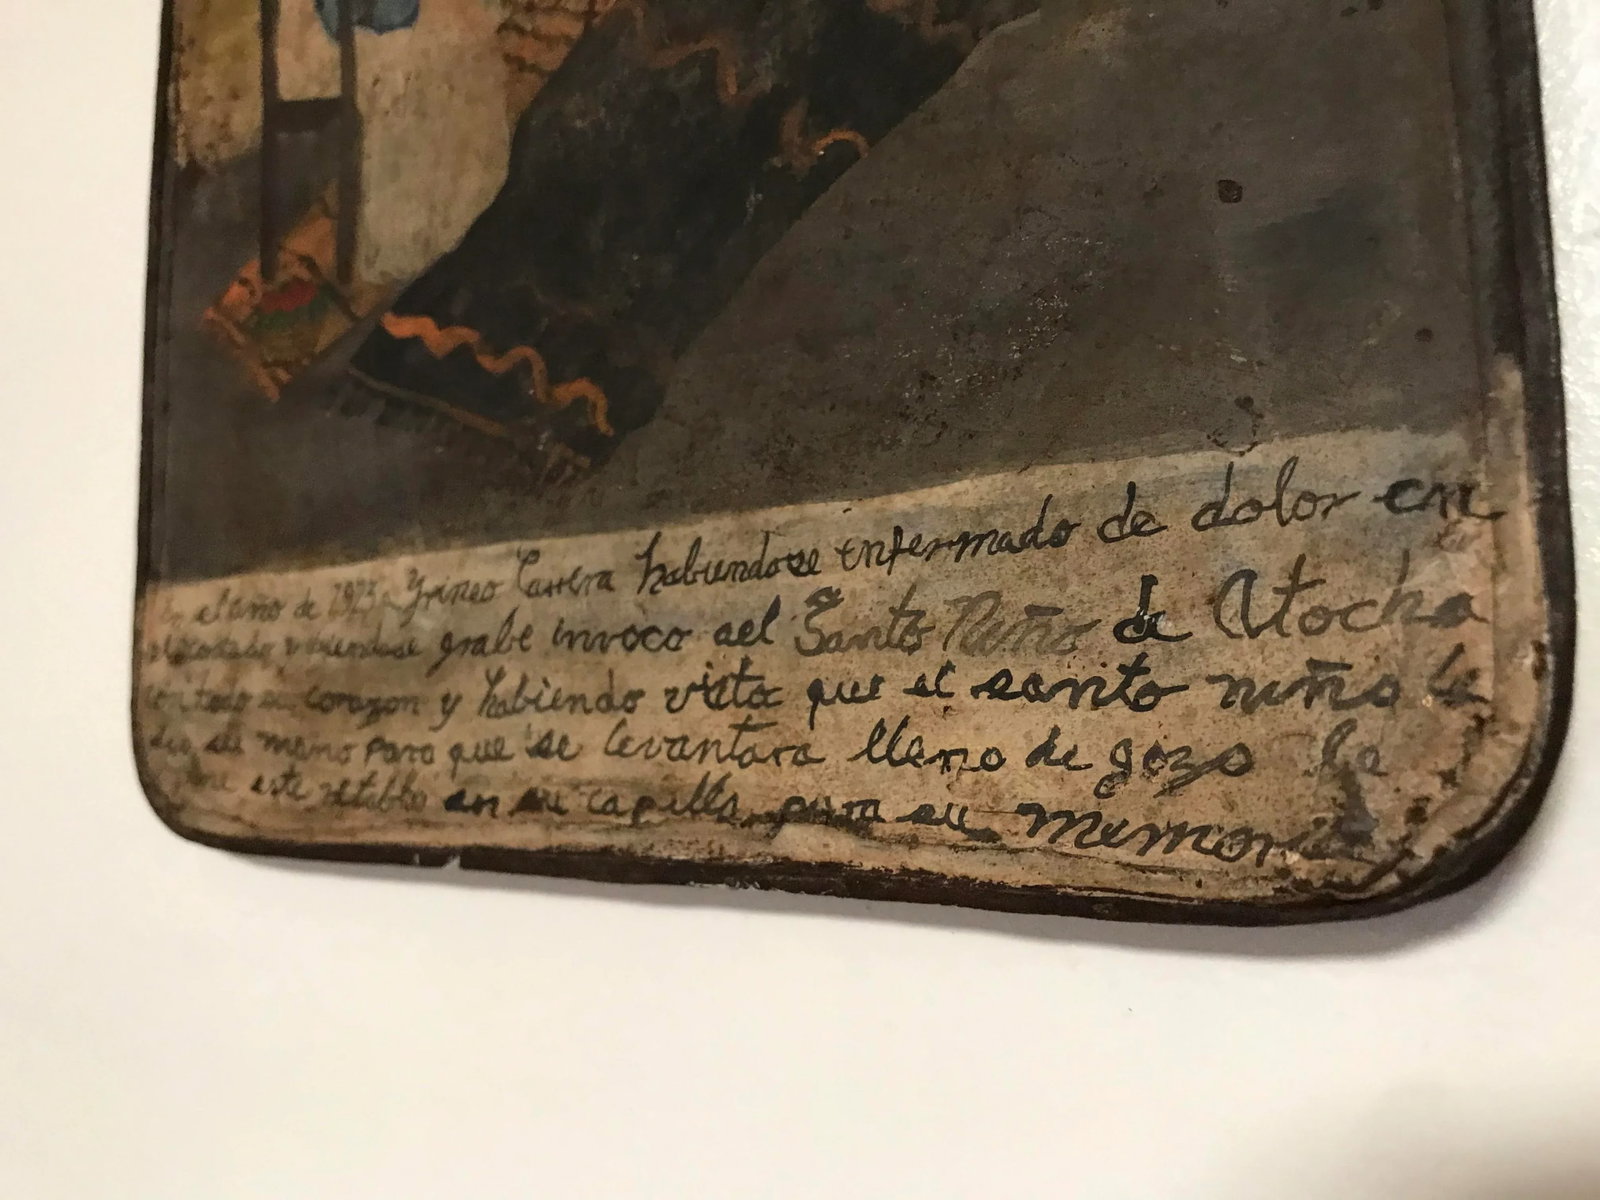 el año de 1925 Yrineo Carrera habiendose enfermado de dolor en
costado viendose grabe invoco ael Santo Niño de Atocha
con todo su corazon y habiendo visto que el santo niño le
dio su mano para que se levantara lleno de gozo le
este retablo en su capilla para su memoria